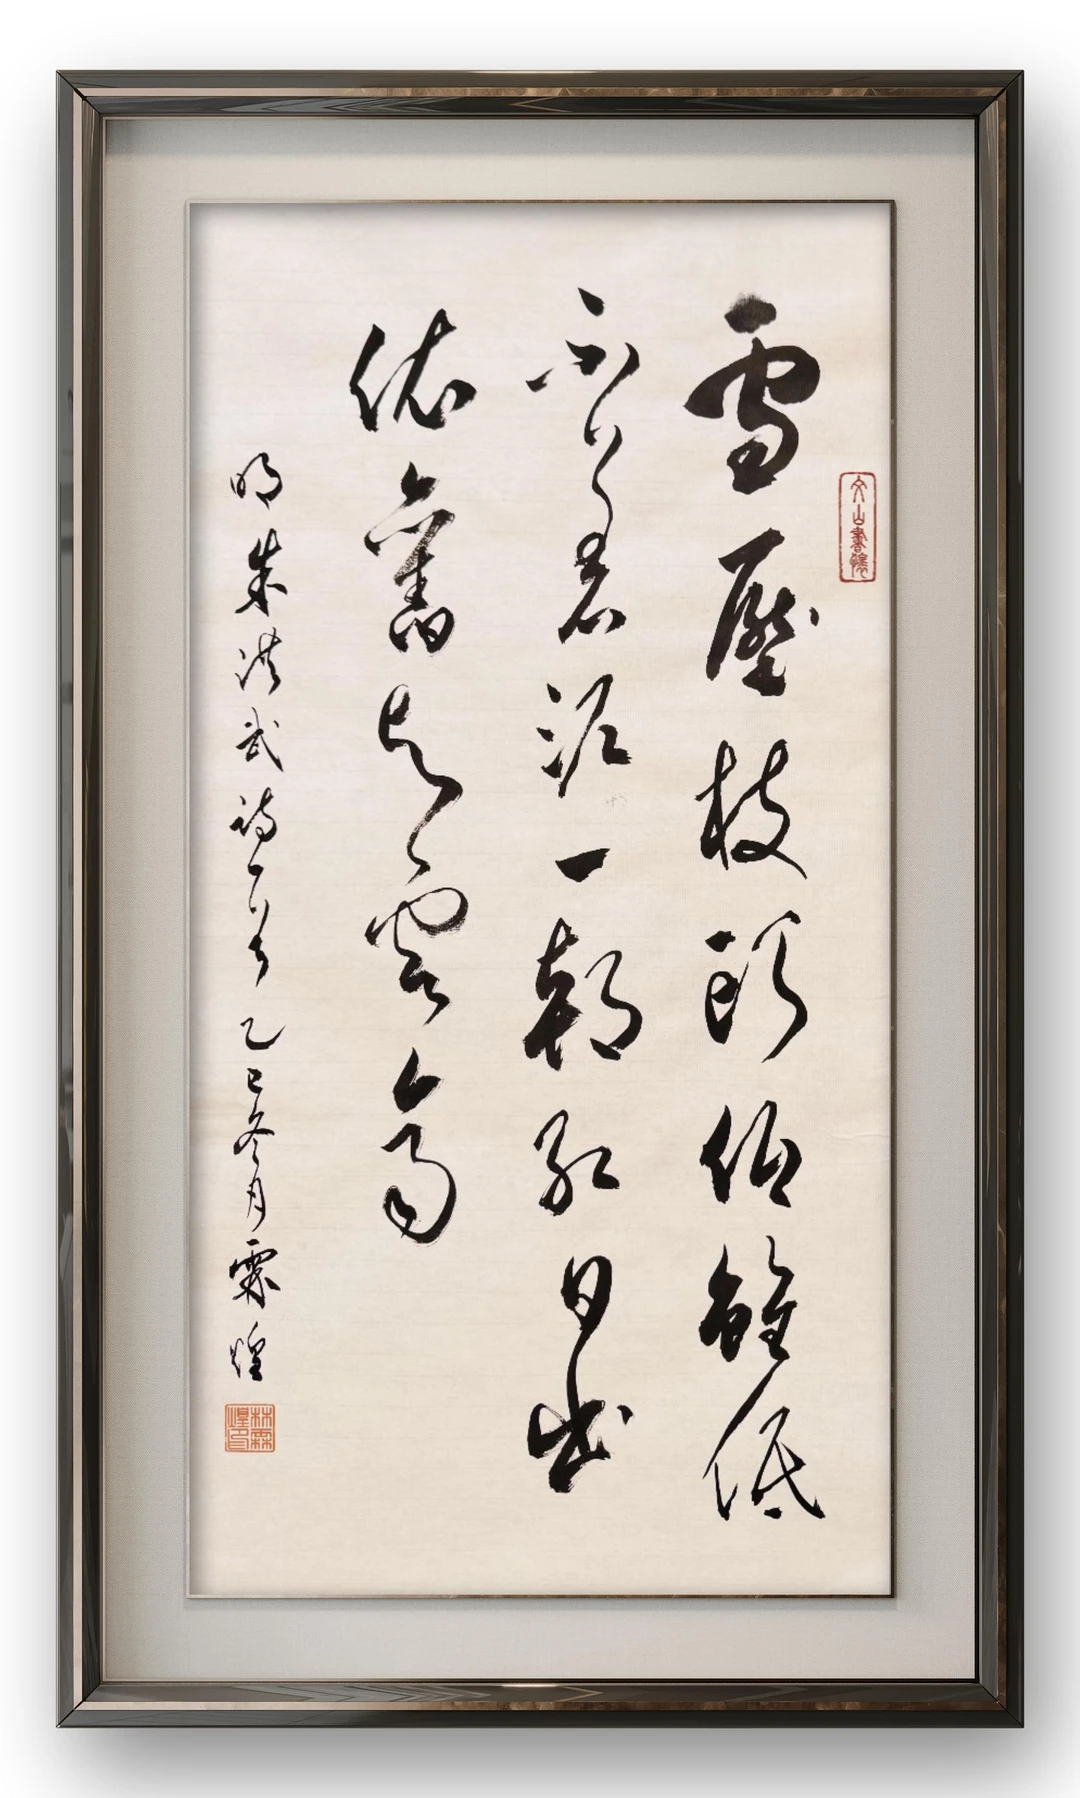 文山書懷
雪壓枝頭低雖低
不着泥一朝紅日出
依舊与雲齊
明朱洪武詩一首乙巳冬月霖煌
林霖煌印